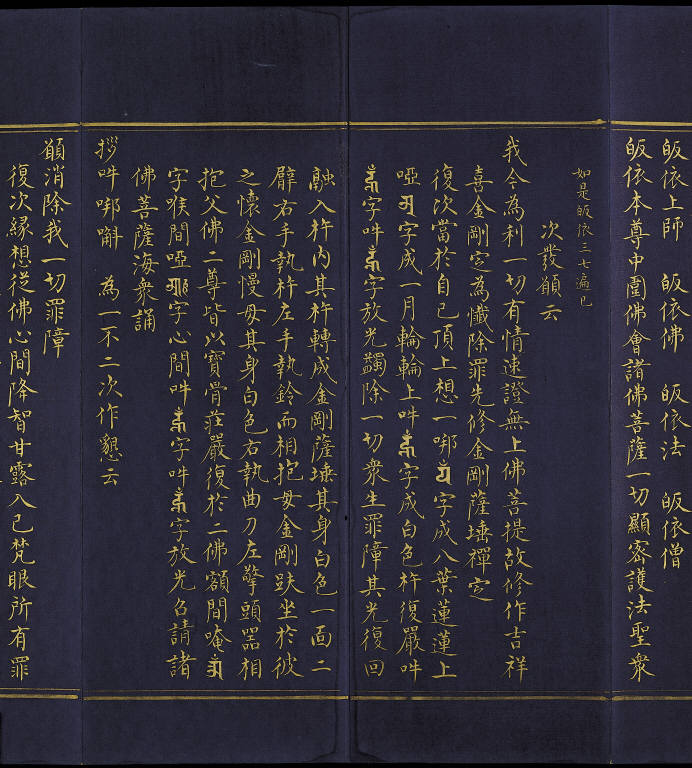 皈依上師　皈依佛　皈依法　皈依僧
皈依本尊中圍佛會諸佛菩薩一切顯密護法聖衆
如是皈依三七遍已
次發願云
我今為利一切有情速證無上佛菩提故修作吉祥
喜金剛定為懺除罪先修金剛薩埵禪定
復次當於自己頂上想一㘕字成八葉蓮蓮上
啞字成一月輪輪上吽字成白色杵復嚴吽
字吽字放光蠲除一切衆生罪障其光復回
融入杵内其杵轉成金剛薩埵其身白色一面二
臂右手執杵左手執鈴而相抱母金剛趺坐於彼
之懷金剛慢母其身白色右執曲刀左擎頭器相
抱父佛二尊皆以寶骨莊嚴復於二佛額間唵
字喉間啞字心間吽字吽字放光召請諸
佛菩薩海衆誦
拶吽㘕斛　為一不二次作懇云
願消除我一切罪障
復次緣想從佛心間降智甘露入已梵眼所有罪